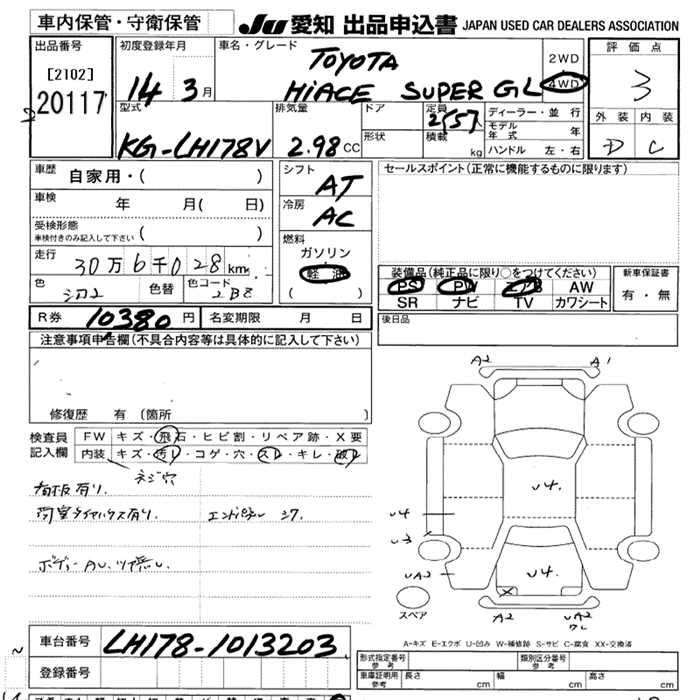 車内保管・守衛保管
JU 愛知 出品申込書 JAPAN USED CAR DEALERS ASSOCIATION
出品番号
[2102]
20117
初度登録年月
14 3月
車名・グレード
TOYOTA
HiACE SUPER GL
2WD
4WD
評価点
3
外装 内装
D C
型式
KG-LH178V
排気量
2.98 CC
ドア
形状
定員
2(5)
積載
kg
ディーラー・並行
モデル年式 年
ハンドル 左・右
車歴
自家用・( )
車検
年 月( 日)
受検形態
車検付きのみ記入して下さい ( )
走行
30万6千028km
色
色替
色コード
2B8
シフト
AT
冷房
AC
燃料
ガソリン
軽油
( )
セールスポイント(正常に機能するものに限ります)
装備品(純正品に限り○をつけてください)
PS PW AW
SR ナビ TV カワシート
新車保証書
有・無
R券 10380円
名変期限 月 日
後日品
注意事項申告欄(不具合内容等は具体的に記入して下さい)
修復歴 有(箇所
検査員
記入欄
FW キズ・飛石・ヒビ割・リペア跡・X要
内装 キズ・汚レ・コゲ・穴・スレ・キレ・破レ
ネジ穴
看板有り.
荷室タイヤハウス有り. エンドパネル
ボディーAU.
A2 A1
U4.
U4
U3
U4.
UA2
A2
UA2
スペア
A-キズ E-エクボ U-凹み W-補修跡 S-サビ C-腐食 XX-交換済
車台番号 LH178-1013203
登録番号
形式指定番号
参考
類別区分番号
参考
車庫証明用
参考
長さ cm
幅 cm
高さ cm